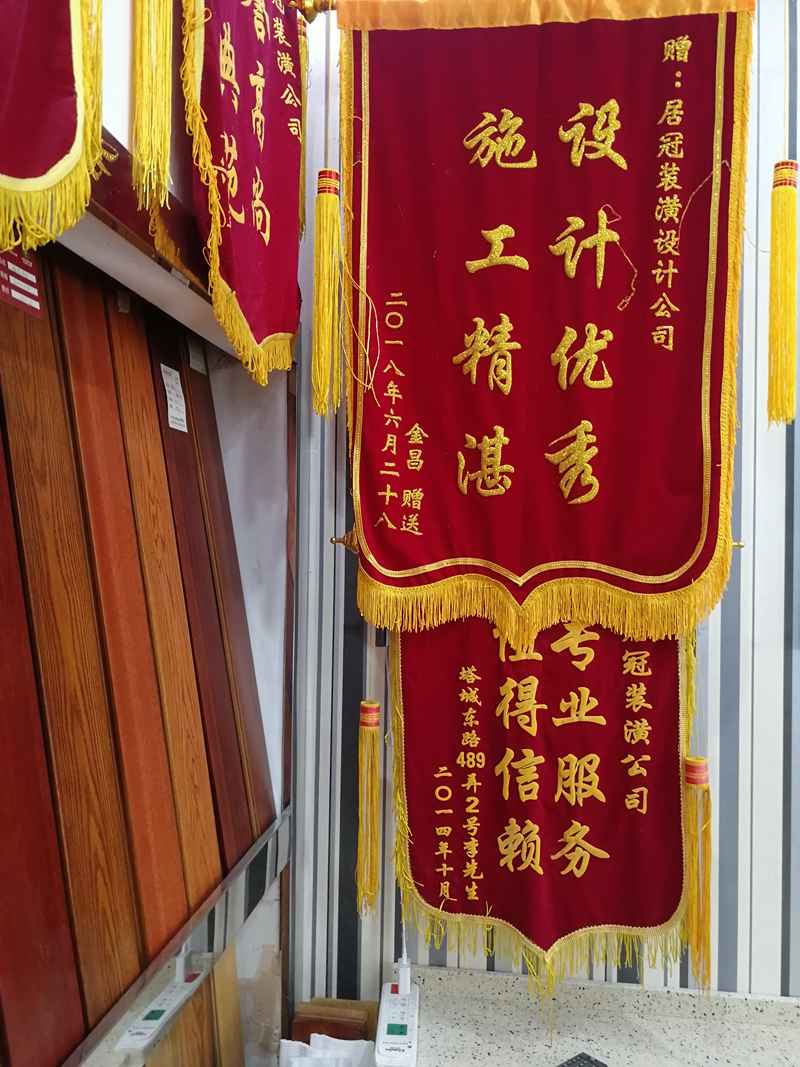 赠：居冠装潢设计公司
设计优秀
施工精湛
金昌 赠送
二〇一八年六月二十八
冠装潢公司
专业服务
值得信赖
塔城东路489弄2号李先生
二〇一四年十月
冠装潢公司
高尚
典范